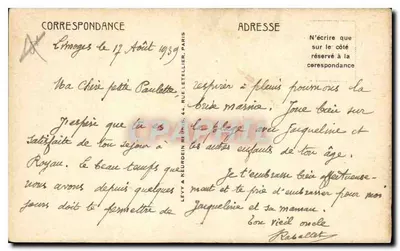 CORRESPONDANCE
ADRESSE
N'écrire que
sur le côté
réservé à la
corespondance
Limoges le 17 Août 1939
Ma Chère petite Paulette,
J'espère que tu es
satisfaite de ton séjour à
Royan. Le beau temps que
nous avons depuis quelques
jours doit te permettre de
LÉVY & NEURDEIN RÉUNIS, 44, RUE LETELLIER, PARIS
respirer à pleins poumons la
brise marine. Joue bien sur
la plage avec Jacqueline et
les autres enfants de ton âge.
Je t'embrasse bien affectueuse-
ment et te prie d'embrasser pour moi
Jacqueline et sa maman.
Ton vieil oncle